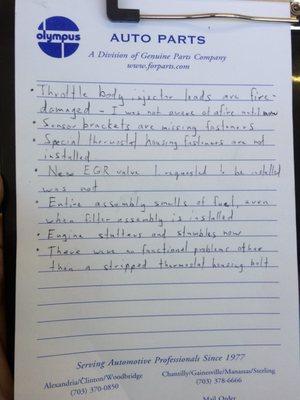 olympus
AUTO PARTS
A Division of Genuine Parts Company
www.forparts.com
• Throttle body injector leads are fire-
damaged - I was not aware of a fire until now
• Sensor brackets are missing fasteners
• Special thermostat housing fasteners are not
installed
• New EGR valve I requested to be installed
was not
• Entire assembly smells of fuel, even
when filler assembly is installed
• Engine stutters and stumbles now
• There were no functional problems other
than a stripped thermostat housing bolt
Serving Automotive Professionals Since 1977
Alexandria/Clinton/Woodbridge
(703) 370-0850
Chantilly/Gainesville/Manassas/Sterling
(703) 378-6666
Mail Order